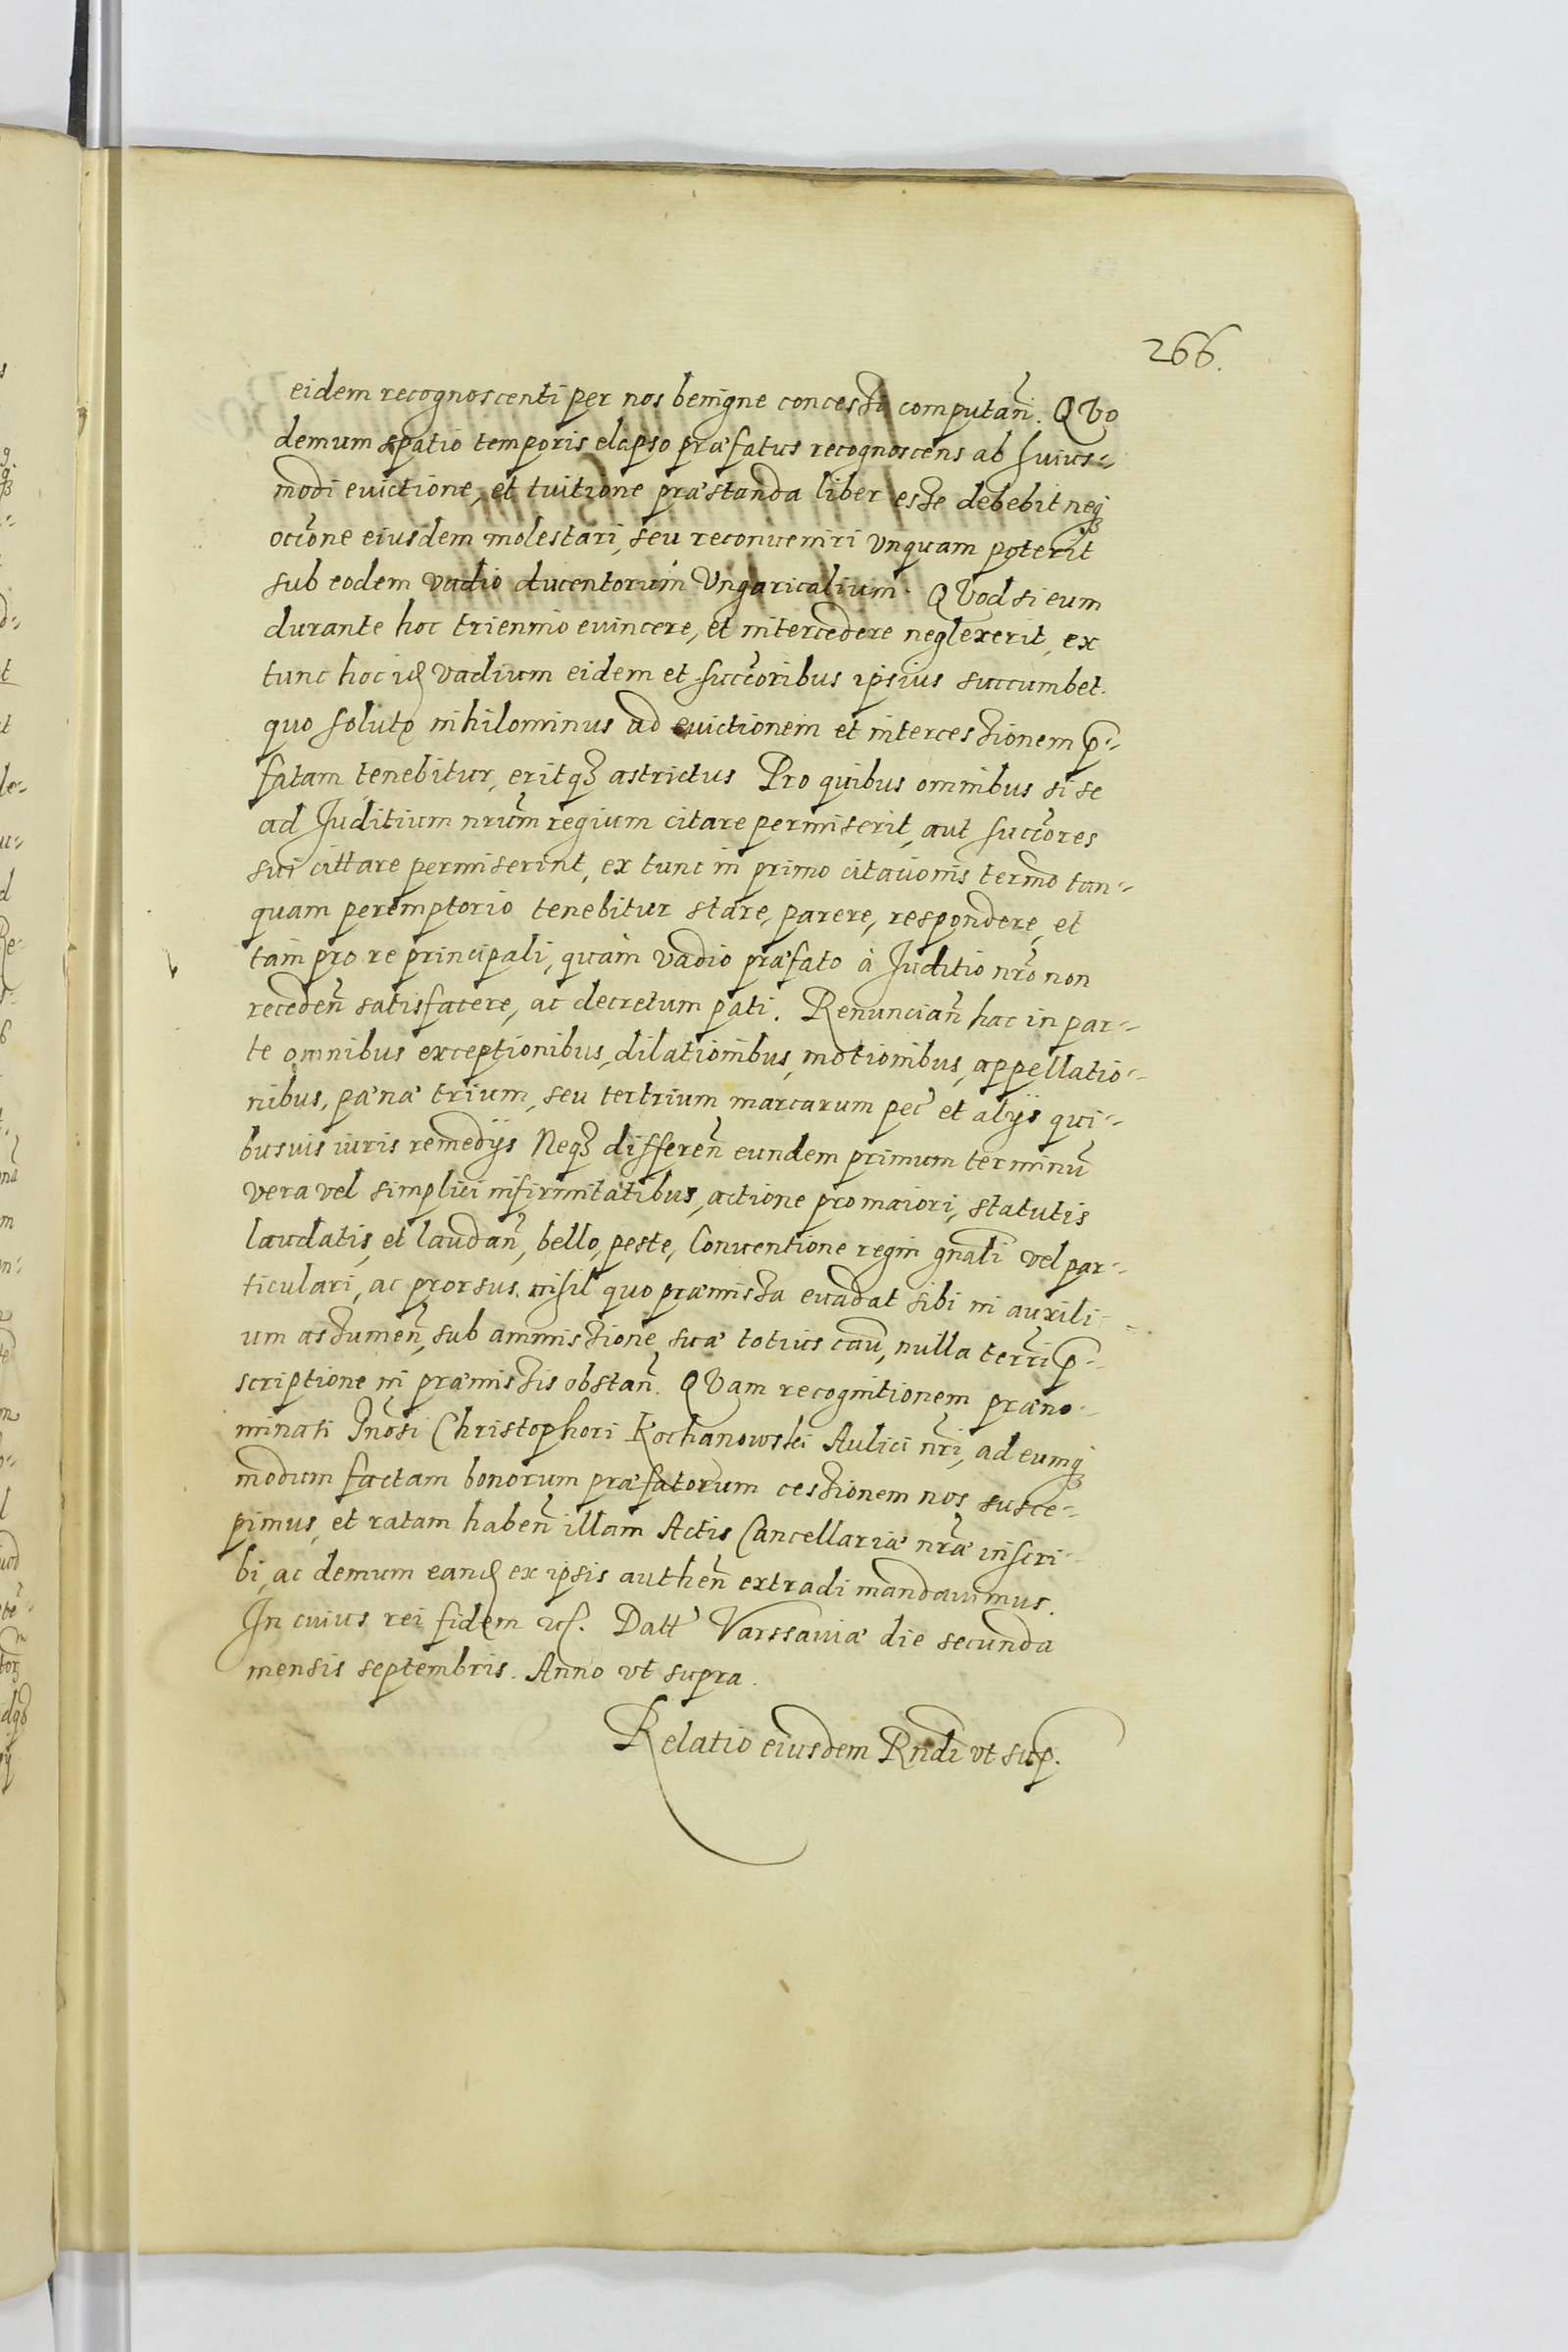 266.
eidem recognoscenti per nos benigne concessi computan̄. QVo
demum spatio temporis elapso præfatus recognoscens ab huius-
modi euictione, et tuitione præstanda liber esse debebit neq₃
occōne eiusdem molestari, seu reconueniri vnquam poterit
sub eodem vadio ducentorum Vngaricalium. QVod si eum
durante hoc triennio euincere, et intercedere neglexerit, ex
tunc hoc id vadium eidem et succōribus ipsius succumbet.
quo soluto nihilominus ad euictionem et intercessionem p̄-
fatam tenebitur, eritq₃ astrictus Pro quibus omnibus si se
ad Juditium nrūm regium citare permiserit, aut succōres
sui cittare permiserint, ex tunc in primo citationis termō tan-
quam peremptorio tenebitur stare, parere, respondere, et
tam pro re principali, quàm vadio præfato à Juditio nrō non
receden̄ satisfacere, ac decretum pati. Renuncian̄ hac in par-
te omnibus exceptionibus, dilationibus, motionibus, appellatio-
nibus, pænæ trium, seu tertrium marcarum pec̄ et alijs qui-
busuis iuris remedijs Neq₃ differen̄ eundem primum terminū
vera vel simplici infirmitatibus, actione pro maiori, statutis
laudatis, et laudan̄, bello, peste, Conuentione regni gnāli vel par-
ticulari, ac prorsus nihil quo præmissa euadat sibi in auxili-
um assumen̄, sub ammissione suæ totius cau̅, nulla terrī p̄-
scriptione in præmissis obstan̄. QVam recognitionem præno-
minati Gnōsi Christophori Kochanowski Aulici nrī, ad eumq₃
modum factam bonorum præfatorum cessionem nos susce-
pimus, et ratam haben̄ illam Actis Cancellariæ nrǣ inscri-
bi, ac demum eand ex ipsis authen̄ extradi mandauimus.
In cuius rei fidem etc. Datt Varssauiæ die secunda
mensis septembris. Anno vt supra.
Relatio eiusdem Rndi vt sup.